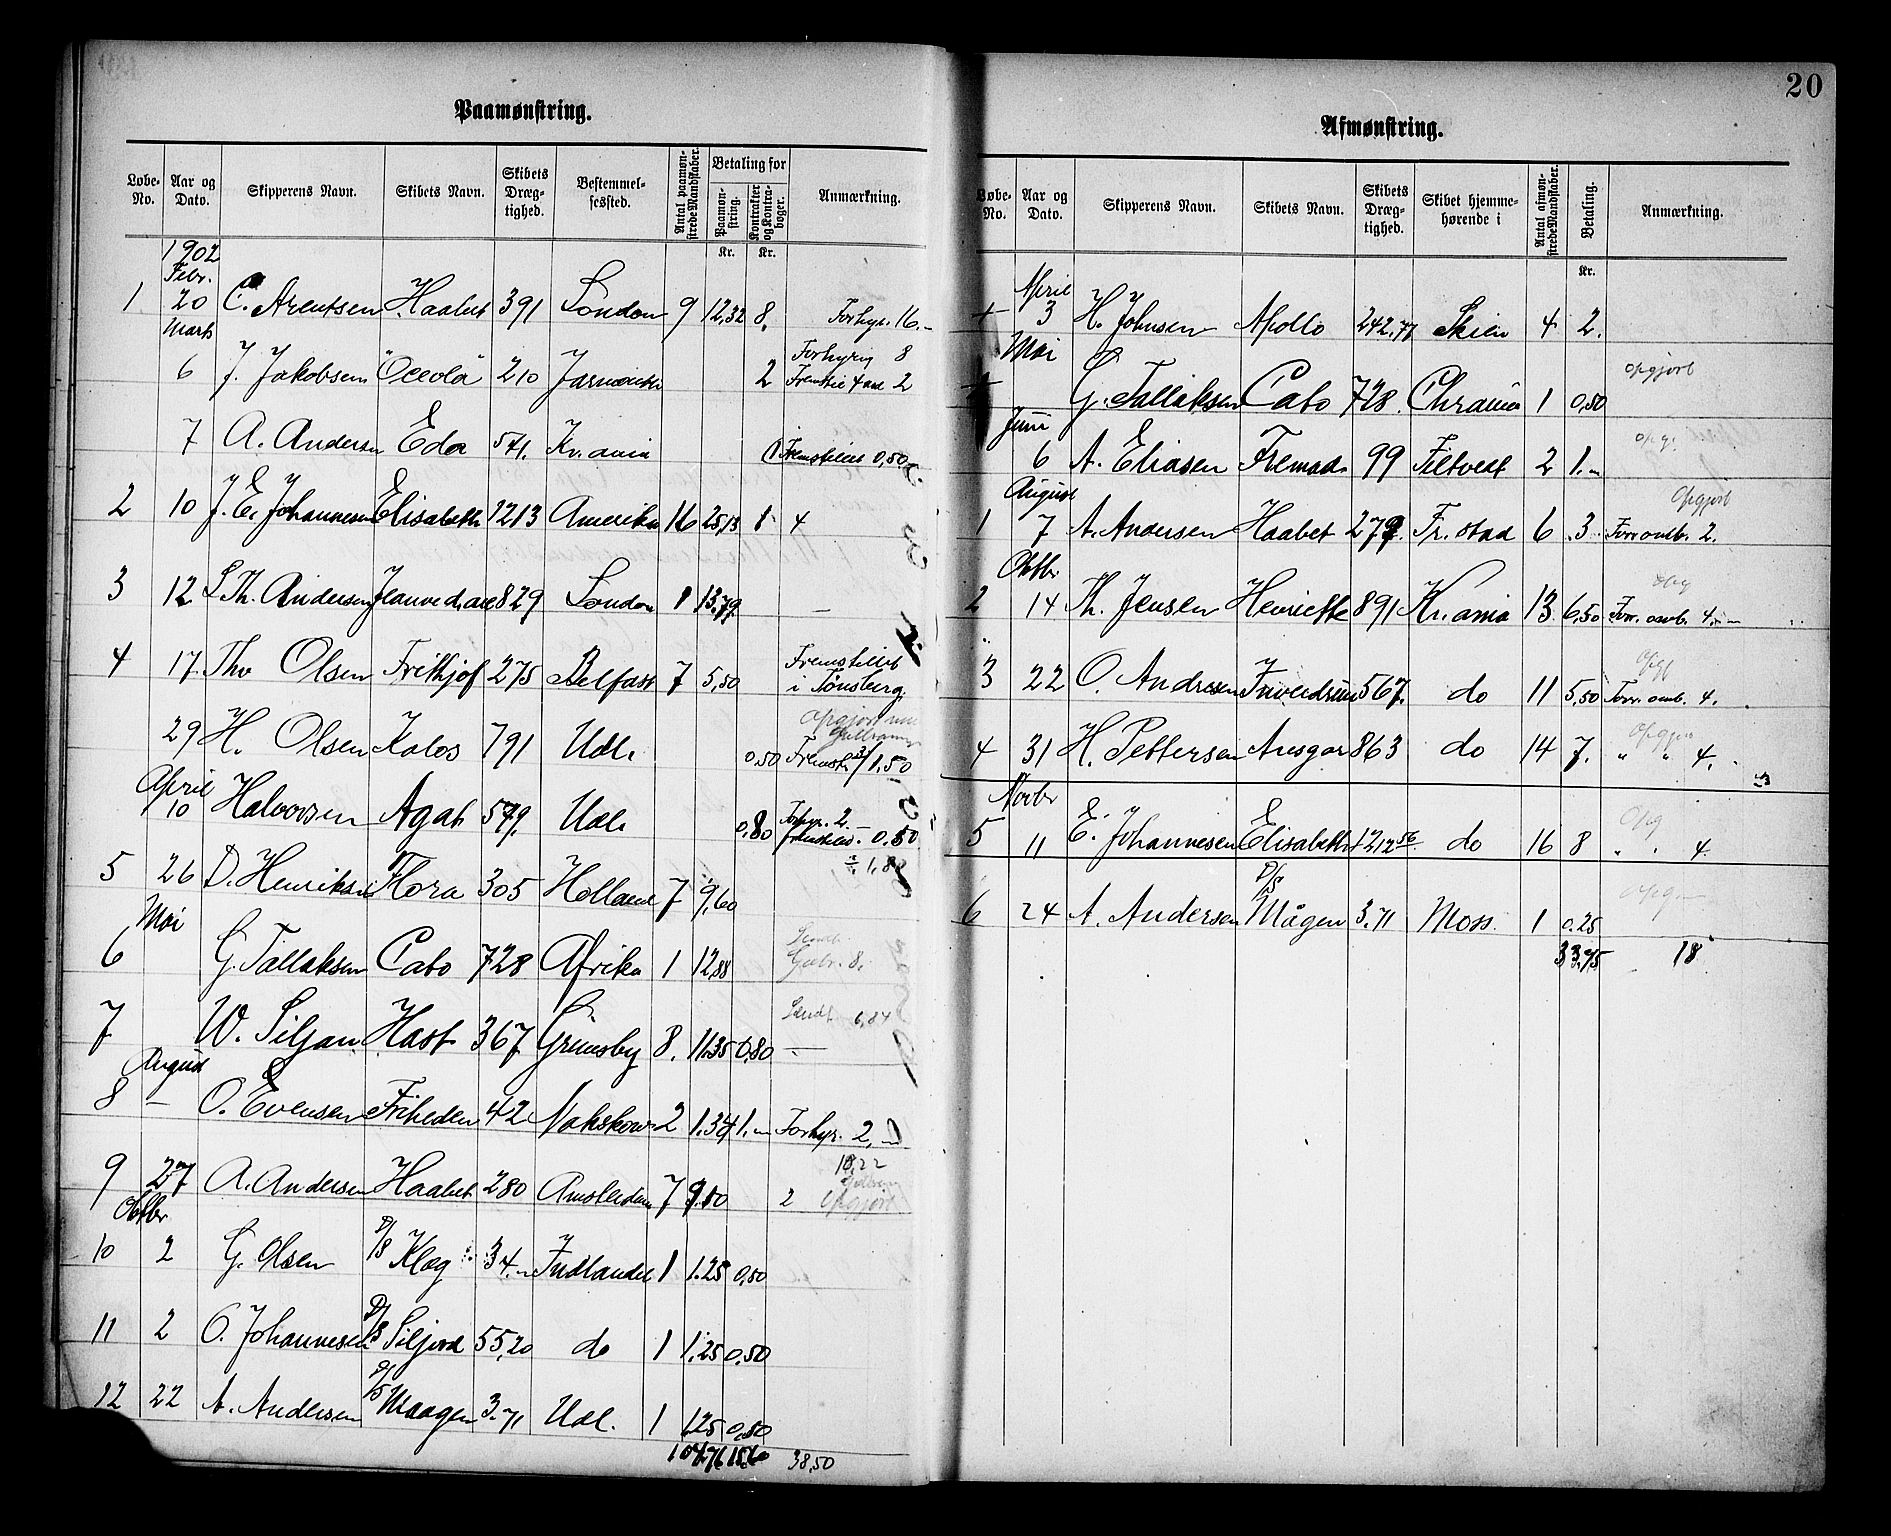 20
Paamønstring.
Løbe-No. Aar og Dato. Skipperens Navn. Skibets Navn. Skibets Dræg-tighed. Bestemmel-sessted. Antal paamøn-strede Mandskaber. Betaling for Paamøn-string. Kontrakter og Kontra-bøger. Anmærkning.
Kr. Kr.
1902
Febr.
1 20 C. Arentsen Haabet 391 London 9 12,32 8. Forhyr. 16.-
Marts
6 J. Jakobsen "Oceola" 210 2 Forhyrig 8
2
7 A. Andersen Eda 571. Kr.ania 1 Fremstillet 0,50
2 10 J. E. Johannesen Elisabeth 1213 Amerika 16 25,13 1 4
3 12 S. Th. Andersen 829 London 13,79 —
4 17. Thv Olsen Frithjof 275 Belfast 7 5,50 Fremstillet
i Tønsberg
29 H. Olsen Kolos 791 Udl. 0,50 Fremst. 1.50
April
10 Halvorsen Agat 579. Udl. 0,80 Forhyr. 2.
0.50
5 26 D. Henriksen Flora 305 Holland 7 9,60
Mai
6 G. Tallaksen Cato 728 Afrika 1 12,88 8.
7 W. Siljan Hast 367 Grimsby 8. 11.35 0,80 6,84
August
8 — O. Evensen Friheden 42 Nakskow 2 1.34 1.— Forhyr. 2,—
9 27 A. Andersen Haabet 280 Amsterdam 7 2 Opgjort
Oktbr
10 2 G. Olsen D/S Klog 34.— Indlandet 1 1.25 0,50
11 2 O. Johannesen D/S Siljord 55,20 do 1 1,25 0,50
12 22 A. Andersen D/S Maagen 3.71 Udl. 1 1,25 0,50
104,76 15,60 38,50
Afmønstring.
Løbe-No. Aar og Dato. Skipperens Navn. Skibets Navn. Skibets Dræg-tighed. Skibet hjemme-hørende i Antal afmøn-strede Mandskaber. Betaling. Anmærkning.
Kr.
April
+ 3 H. Johnsen Apollo 242.77 Skien 4 2.
Mai
+ G. Tallaksen Cato 728 Chrania 1 0,50 opgjort
Juni
6 A. Eliasen Fremad 99 Filtvedt 2 1.— opg.
August
1 7 A. Andersen Haabet 279. Fr.stad 6 .3. Forr. omb. 2. Opgjort
Oktbr
2 14 Th. Jensen Henriette 891 Kr.ania 13 6,50 Forr. omb. 4.—
3 22 O. Andresen 567. do 11 5,50 Forr. omb. 4.
4 31 H. Pettersen Ansgar 863 do 14 7. " " 4.
Novbr
5 11 E. Johannesen Elisabeth 1212 56 do 16 8 " " 4. Opg
6 24 A. Andersen D/S Mågen 3.71 Moss. 1 0.25 Opg.
33.75 18